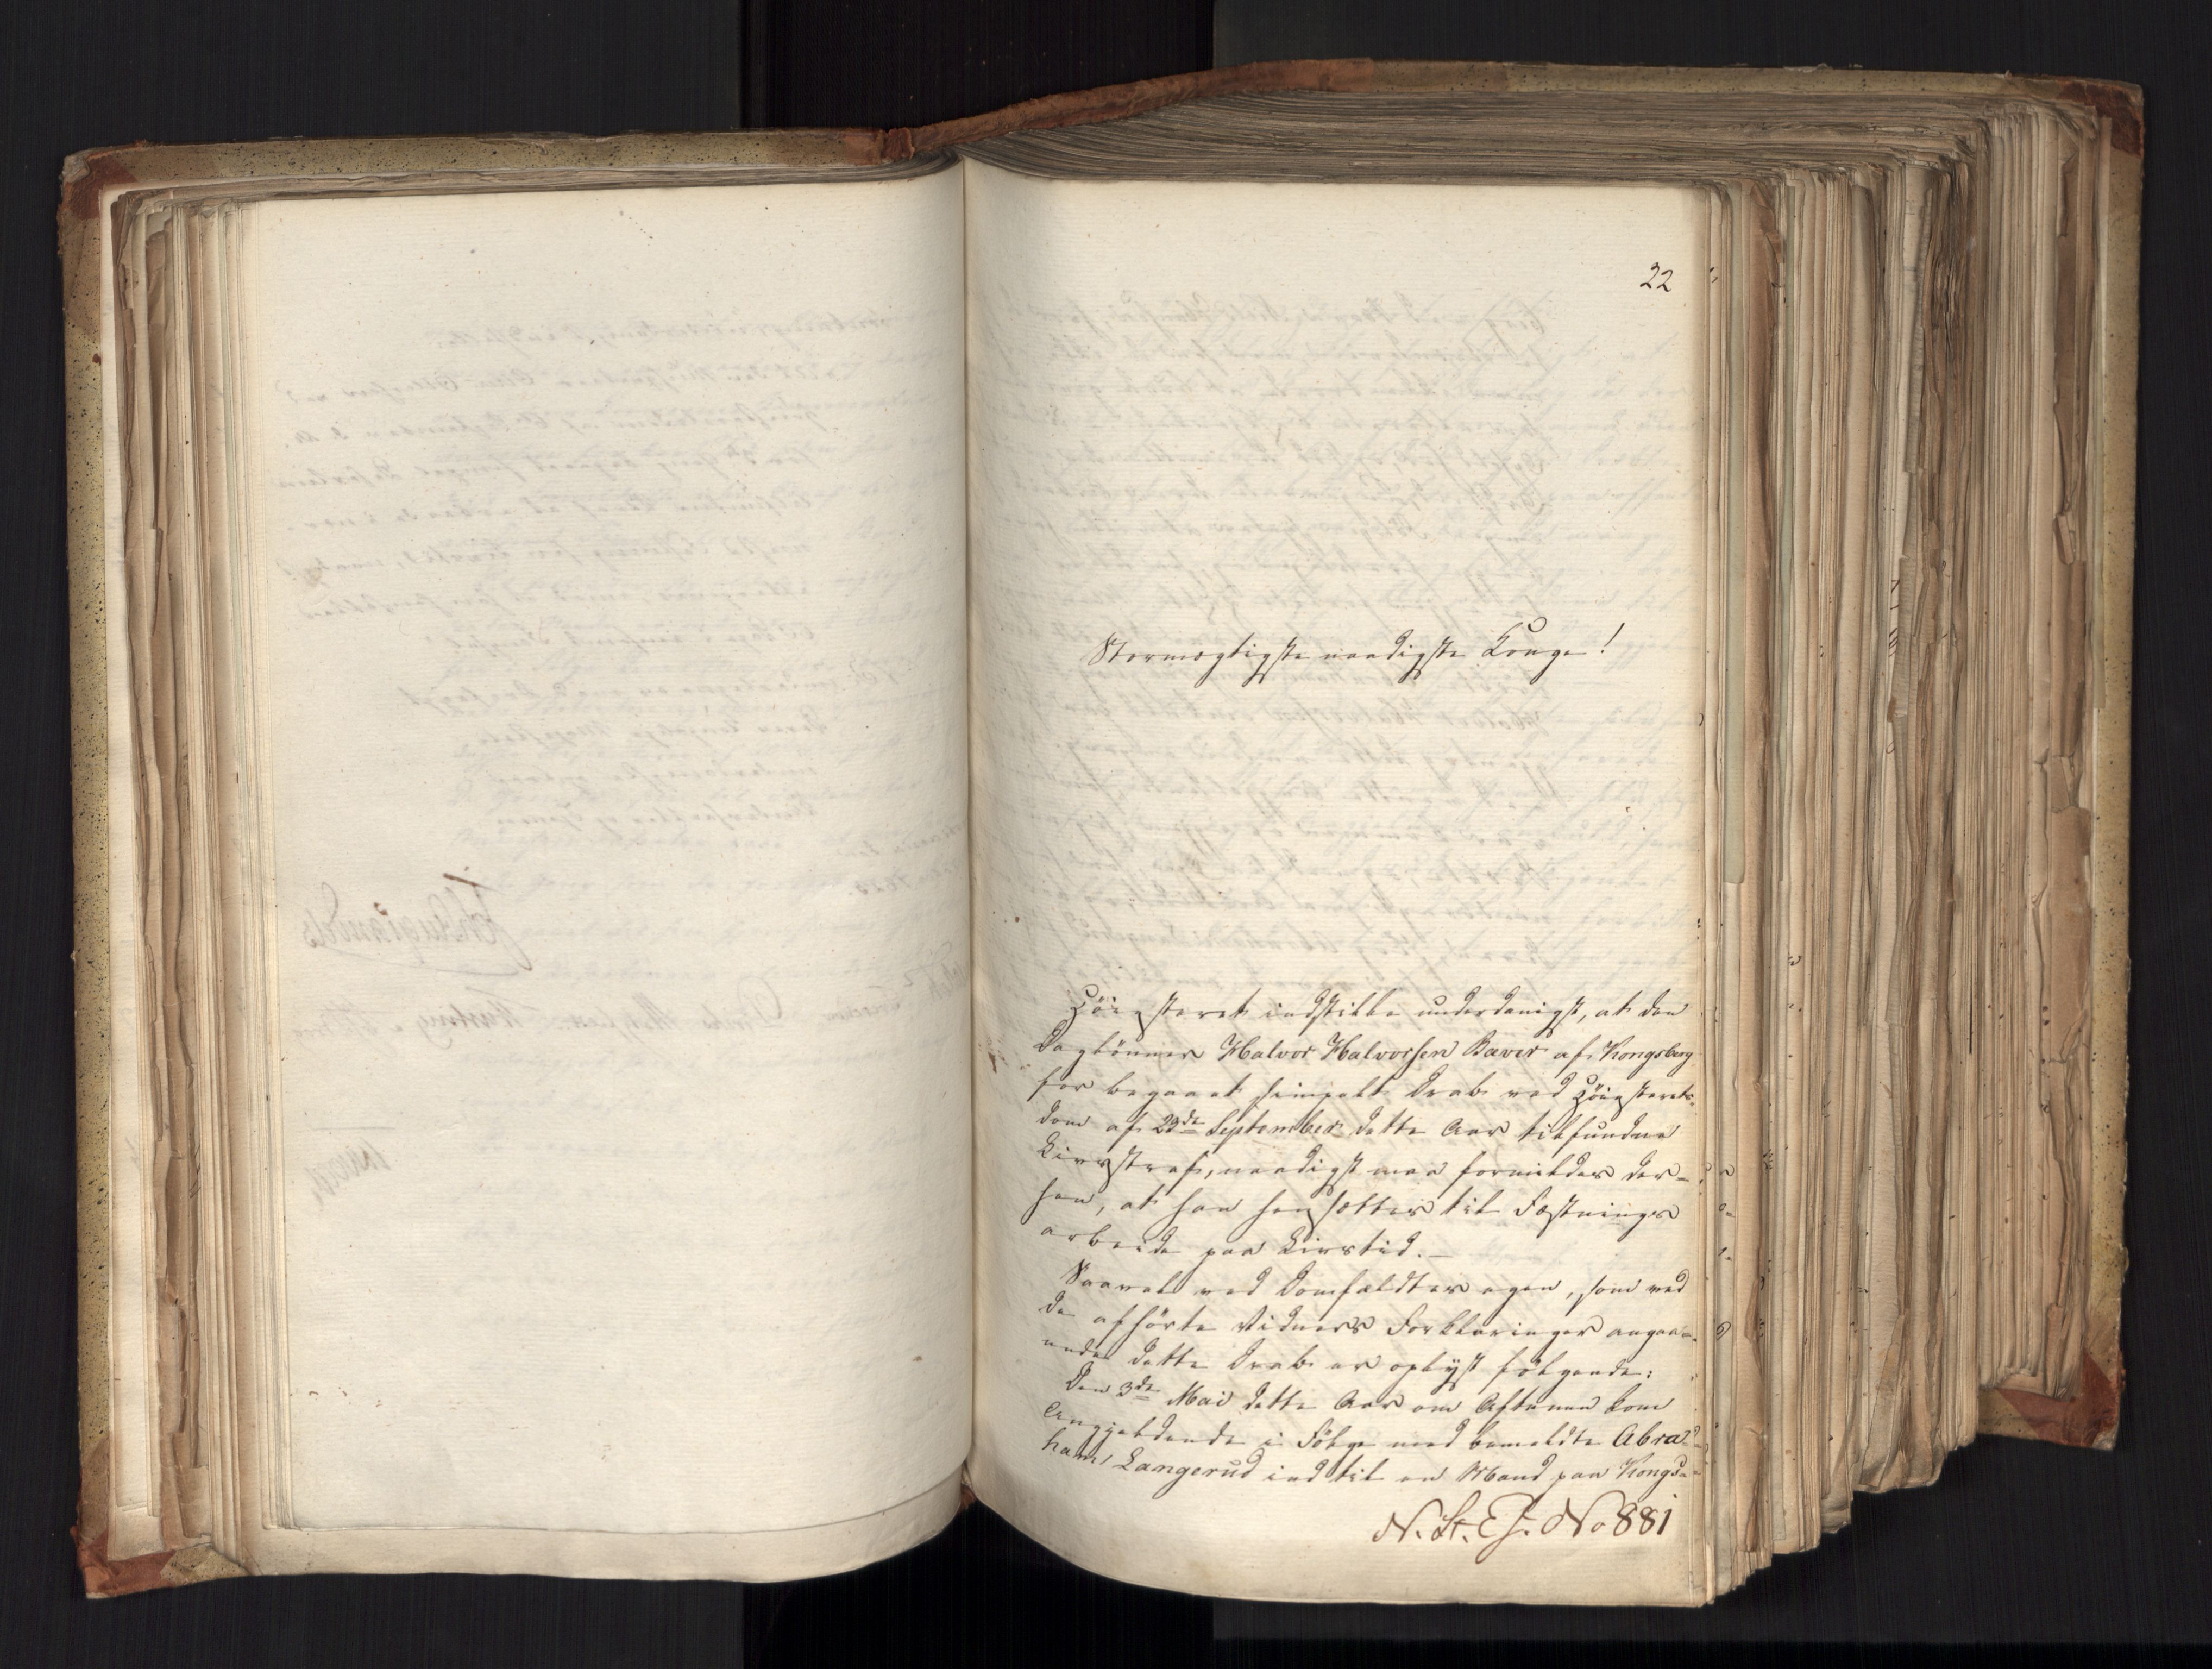 22
Stormægtigste naadigste Konge!
Höiesteret indstille underdanigst, at den
Daglönner Halvor Halvorsen Baver af Kongsberg
for begaaet simpelt Drab ved Höiesterets-
dom af 23de September dette Aar tilfundne
Livsstraf, naadigst maa formildes der-
hen, at han hensættes til Fæstnings
arbeide paa Livstid.-
Saavel ved Domfældtes egen, som ved
de afhörte Vidners Forklaringer angaa-
ende dette Drab er oplyst fölgende:
Den 3de Mai dette Aar om Aftenen kom
Angjeldende i Fölge med bemeldte Abra-
ham Langerud ind til en Mand paa Kongs-
N. St. Ex. No 881